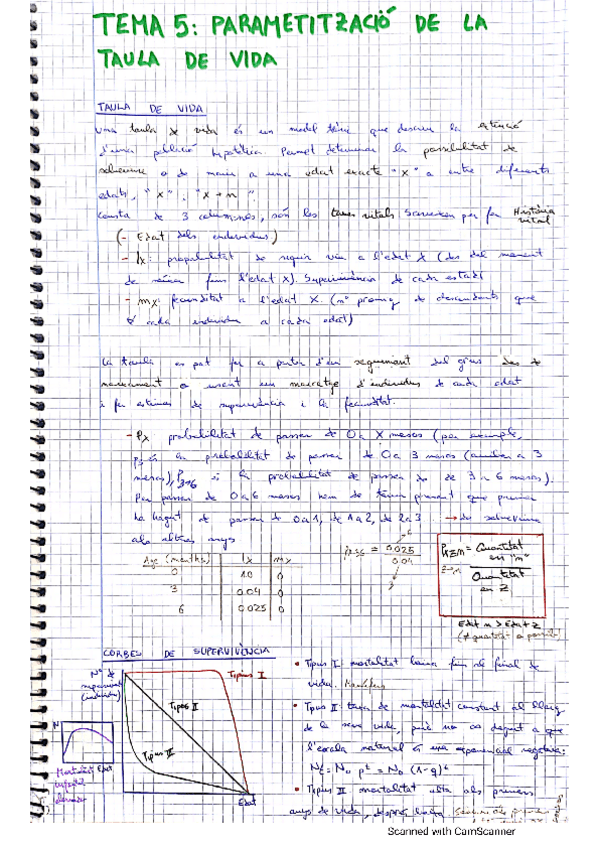 TEMA 5: PARAMETITZACIÓ DE LA
TAULA DE VIDA
TAULA DE VIDA
Una taula de vida és un model teòric que descriu la
d'una població hipotètica. Permet determinar la possibilitat de
o de morir a una edat exacte "x" o entre diferents
edats, "x" "x + n".
Consta de 3 columnes, són les taxes vitals per fer Història
vital
(- Edat dels individus)
- lx: probabilitat de seguir viu a l'edat X (des del moment
de néixer fins l'edat x). Supervivència de cada estadi
- mx: fecunditat a l'edat X. (nº promig de descendents que
té cada individu a cada edat)
La taula es pot fer a partir d'un seguiment del grup des de
naixement o usant un marcatge d'individus de cada edat
i fer estimes de supervivència i la fecunditat.
- Px probabilitat de passar de 0 a X mesos (per exemple,
P3 és la probabilitat de passar de 0 a 3 mesos (
mesos), P3→6 és la probabilitat de passar de 3 a 6 mesos).
Per passar de 0 a 6 mesos hem de tenir present que primer
ha hagut de passar de 0 a 1, de 1 a 2, de 2 a 3 → de
als altres anys
Age (months) lx mx
0 1.0 0
3 0.04 0
6 0.025 0
= 0.025
0.04
6
3
= Quantitat
en "m"
Quantitat
en Z
Edat m > Edat Z
CORBES DE SUPERVIVÈNCIA
Nº de
Tipus I
Tipus II
Tipus III
Edat
N
Edat
Mortalitat
• Tipus I: mortalitat baixa fins al final de
vida.
• Tipus II: taxa de mortalitat constant al llarg
de la seva vida, però no es degut a que
l'escala natural és una exponencial negativa:
• Tipus III mortalitat alta els primers
anys de vida, després baixa.
Scanned with CamScanner